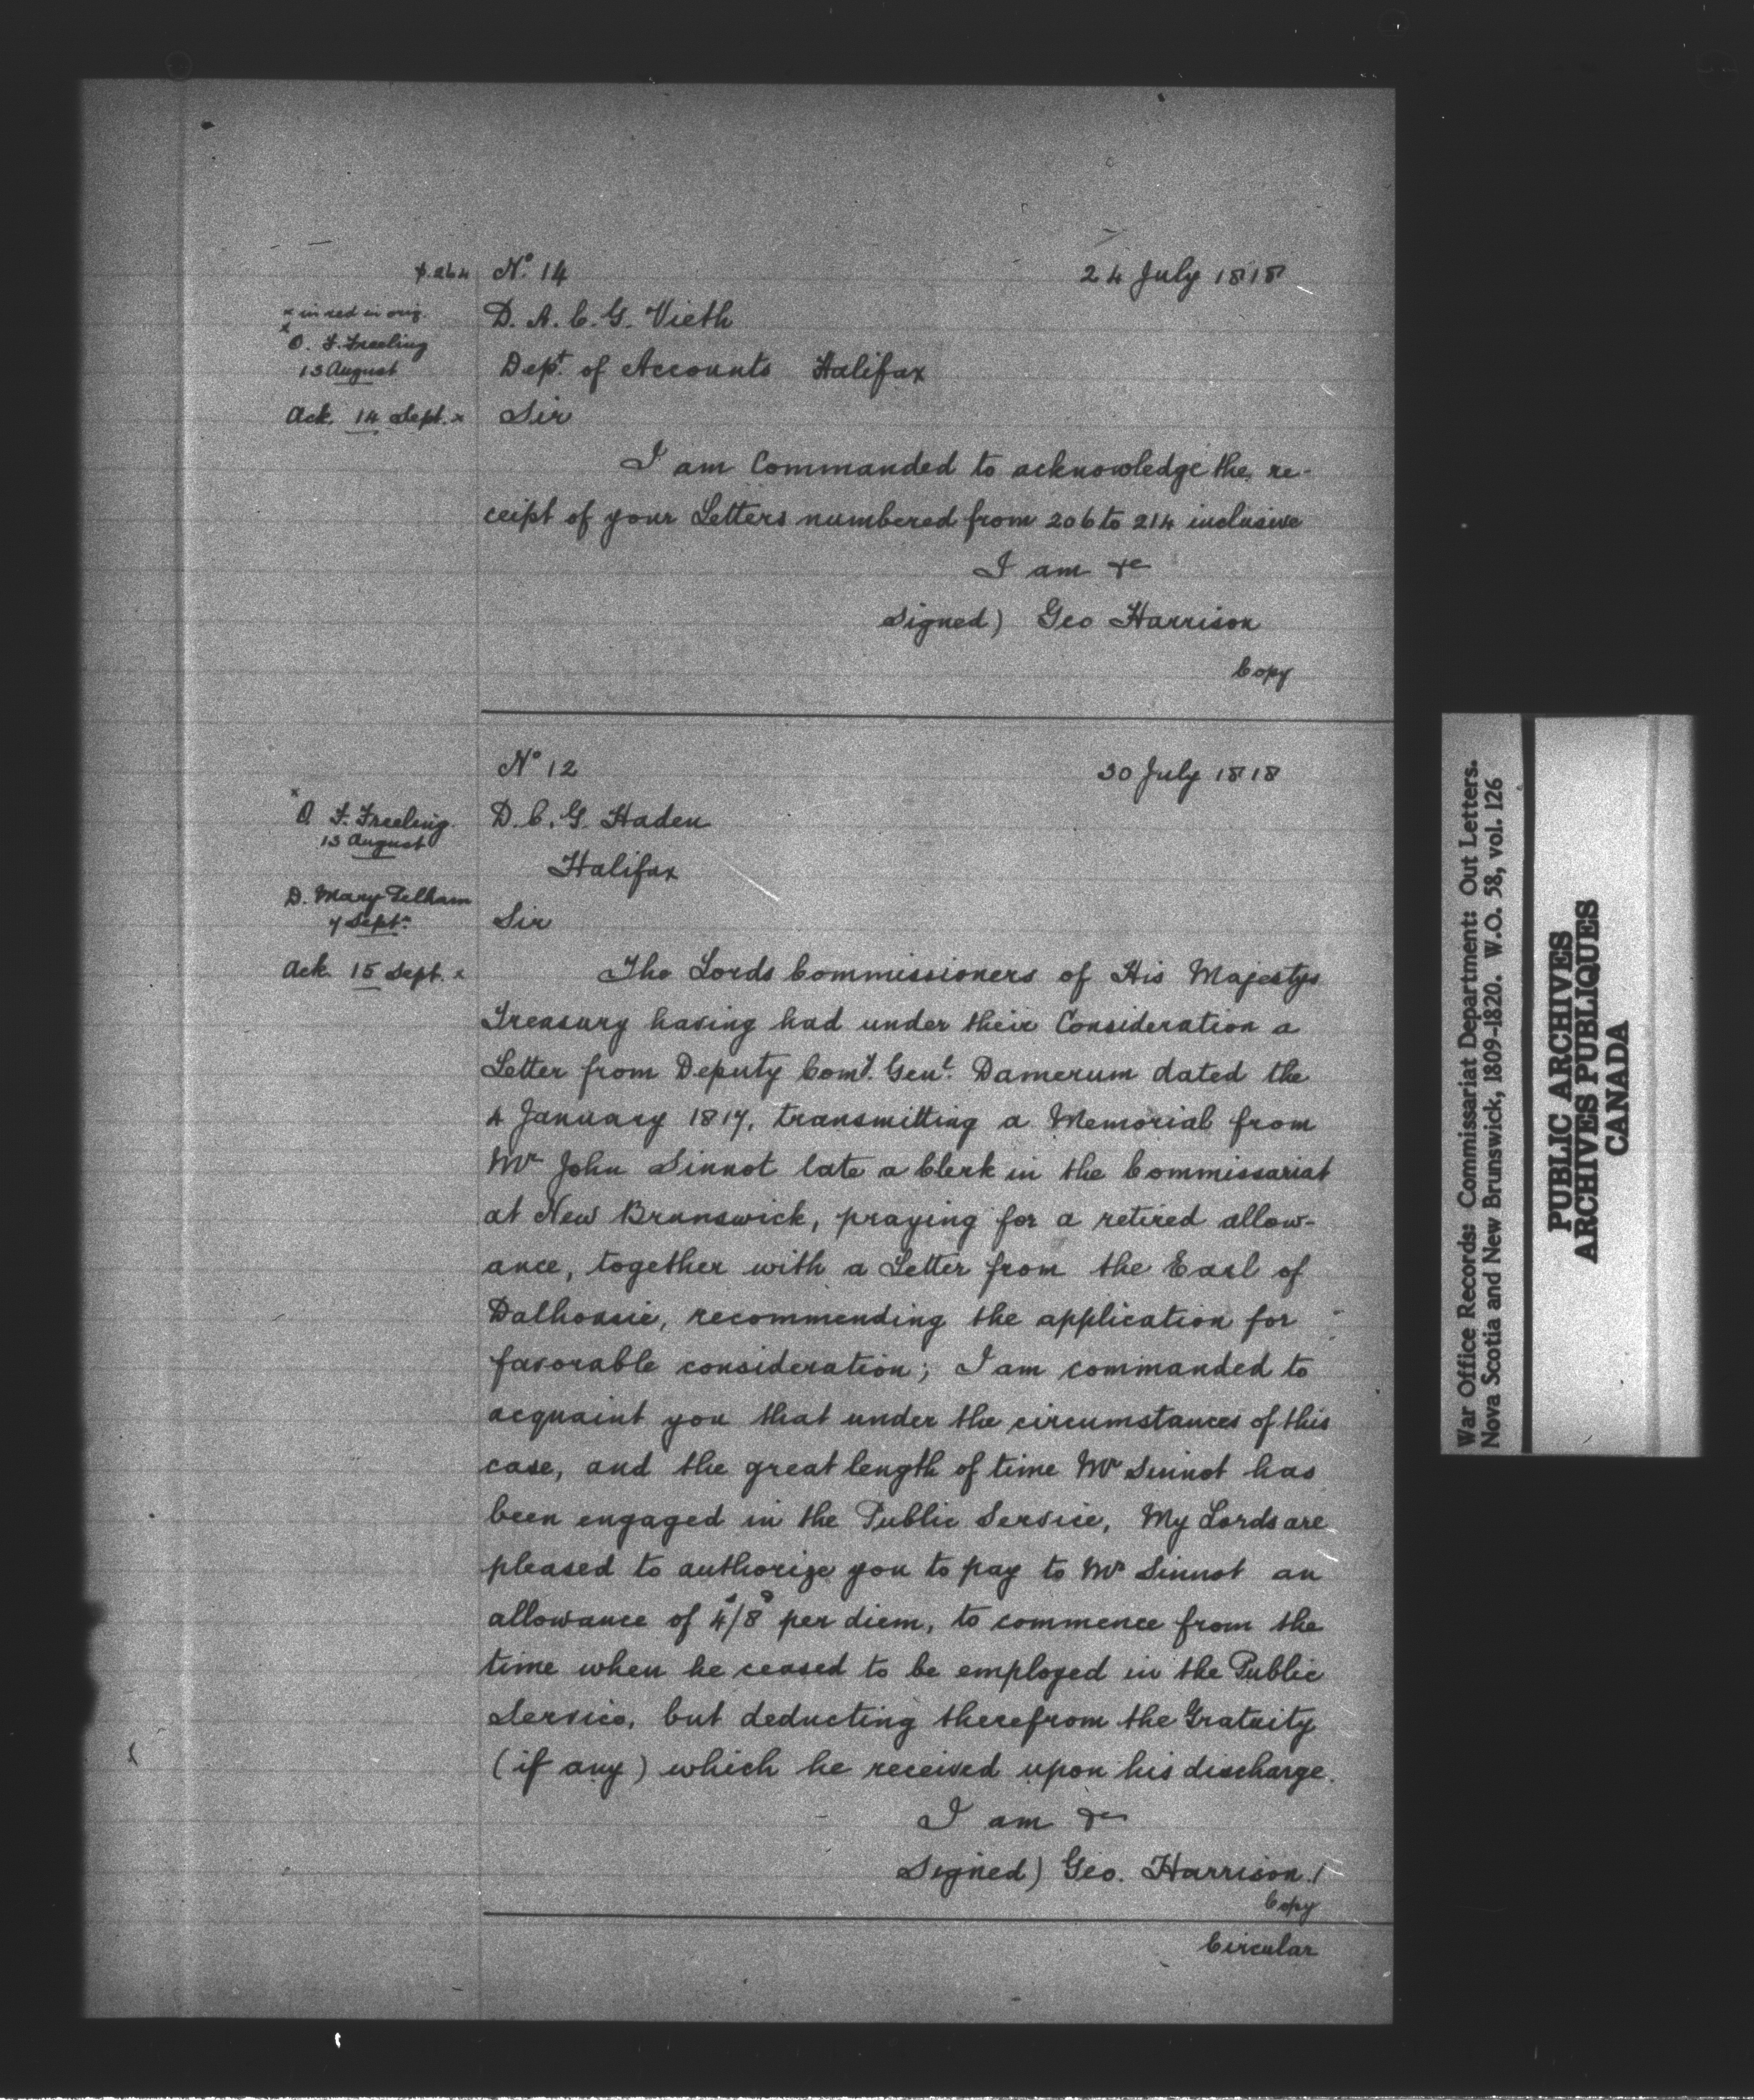 p. 264 Nº 14 24 July 1818
x in red in orig.
D. A. C. G. Vieth
x O. F. Freeling
13 August
Dept. of Accounts Halifax
Ack. 14 Sept. x Sir
I am Commanded to acknowledge the re-
ceipt of your Letters numbered from 206 to 214 inclusive
I am &c
Signed) Geo Harrison
Copy
Nº 12 30 July 1818
x O. F. Freeling.
13 August
D. C. G. Haden
Halifax
D. Mary Pelham
7 Sept.
Sir
Ack. 15 Sept. x
The Lords Commissioners of His Majestys
Treasury having had under their Consideration a
Letter from Deputy Comy. Genl. Damerum dated the
4 January 1817, transmitting a Memorial from
Mr John Sinnot late a Clerk in the Commissariat
at New Brunswick, praying for a retired allow-
ance, together with a Letter from the Earl of
Dalhousie, recommending the application for
favorable consideration; I am commanded to
acquaint you that under the circumstances of this
case, and the great length of time Mr Sinnot has
been engaged in the Public Service, My Lords are
pleased to authorize you to pay to Mr Sinnot an
allowance of 4s/8d per diem, to commence from the
time when he ceased to be employed in the Public
Service, but deducting therefrom the Gratuity
(if any) which he received upon his discharge.
I am &c
Signed) Geo. Harrison /
Copy
Circular
War Office Records: Commissariat Department: Out Letters.
Nova Scotia and New Brunswick, 1809-1820. W.O. 58, vol. 126
PUBLIC ARCHIVES
ARCHIVES PUBLIQUES
CANADA